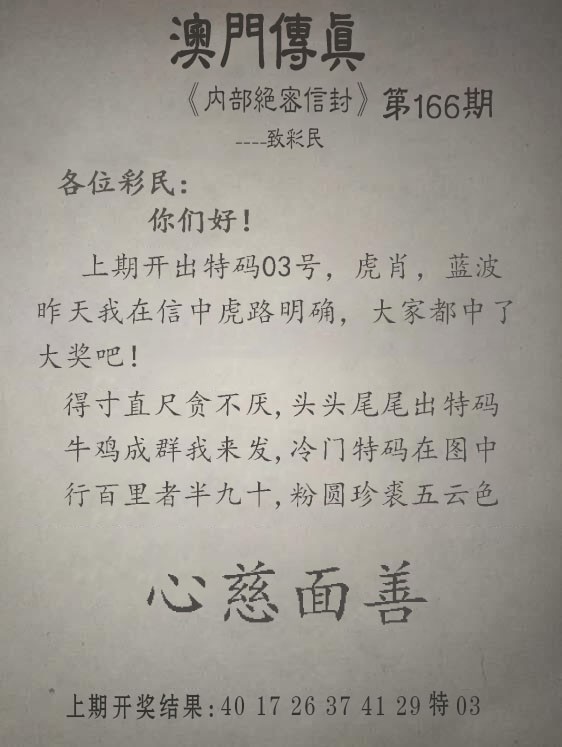 澳門傳真
《内部絕密信封》第166期
----致彩民
各位彩民：
你们好！
上期开出特码03号，虎肖，蓝波
昨天我在信中虎路明确，大家都中了
大奖吧！
得寸直尺贪不厌,头头尾尾出特码
牛鸡成群我来发,冷门特码在图中
行百里者半九十,粉圆珍裘五云色
心慈面善
上期开奖结果:40 17 26 37 41 29 特 03